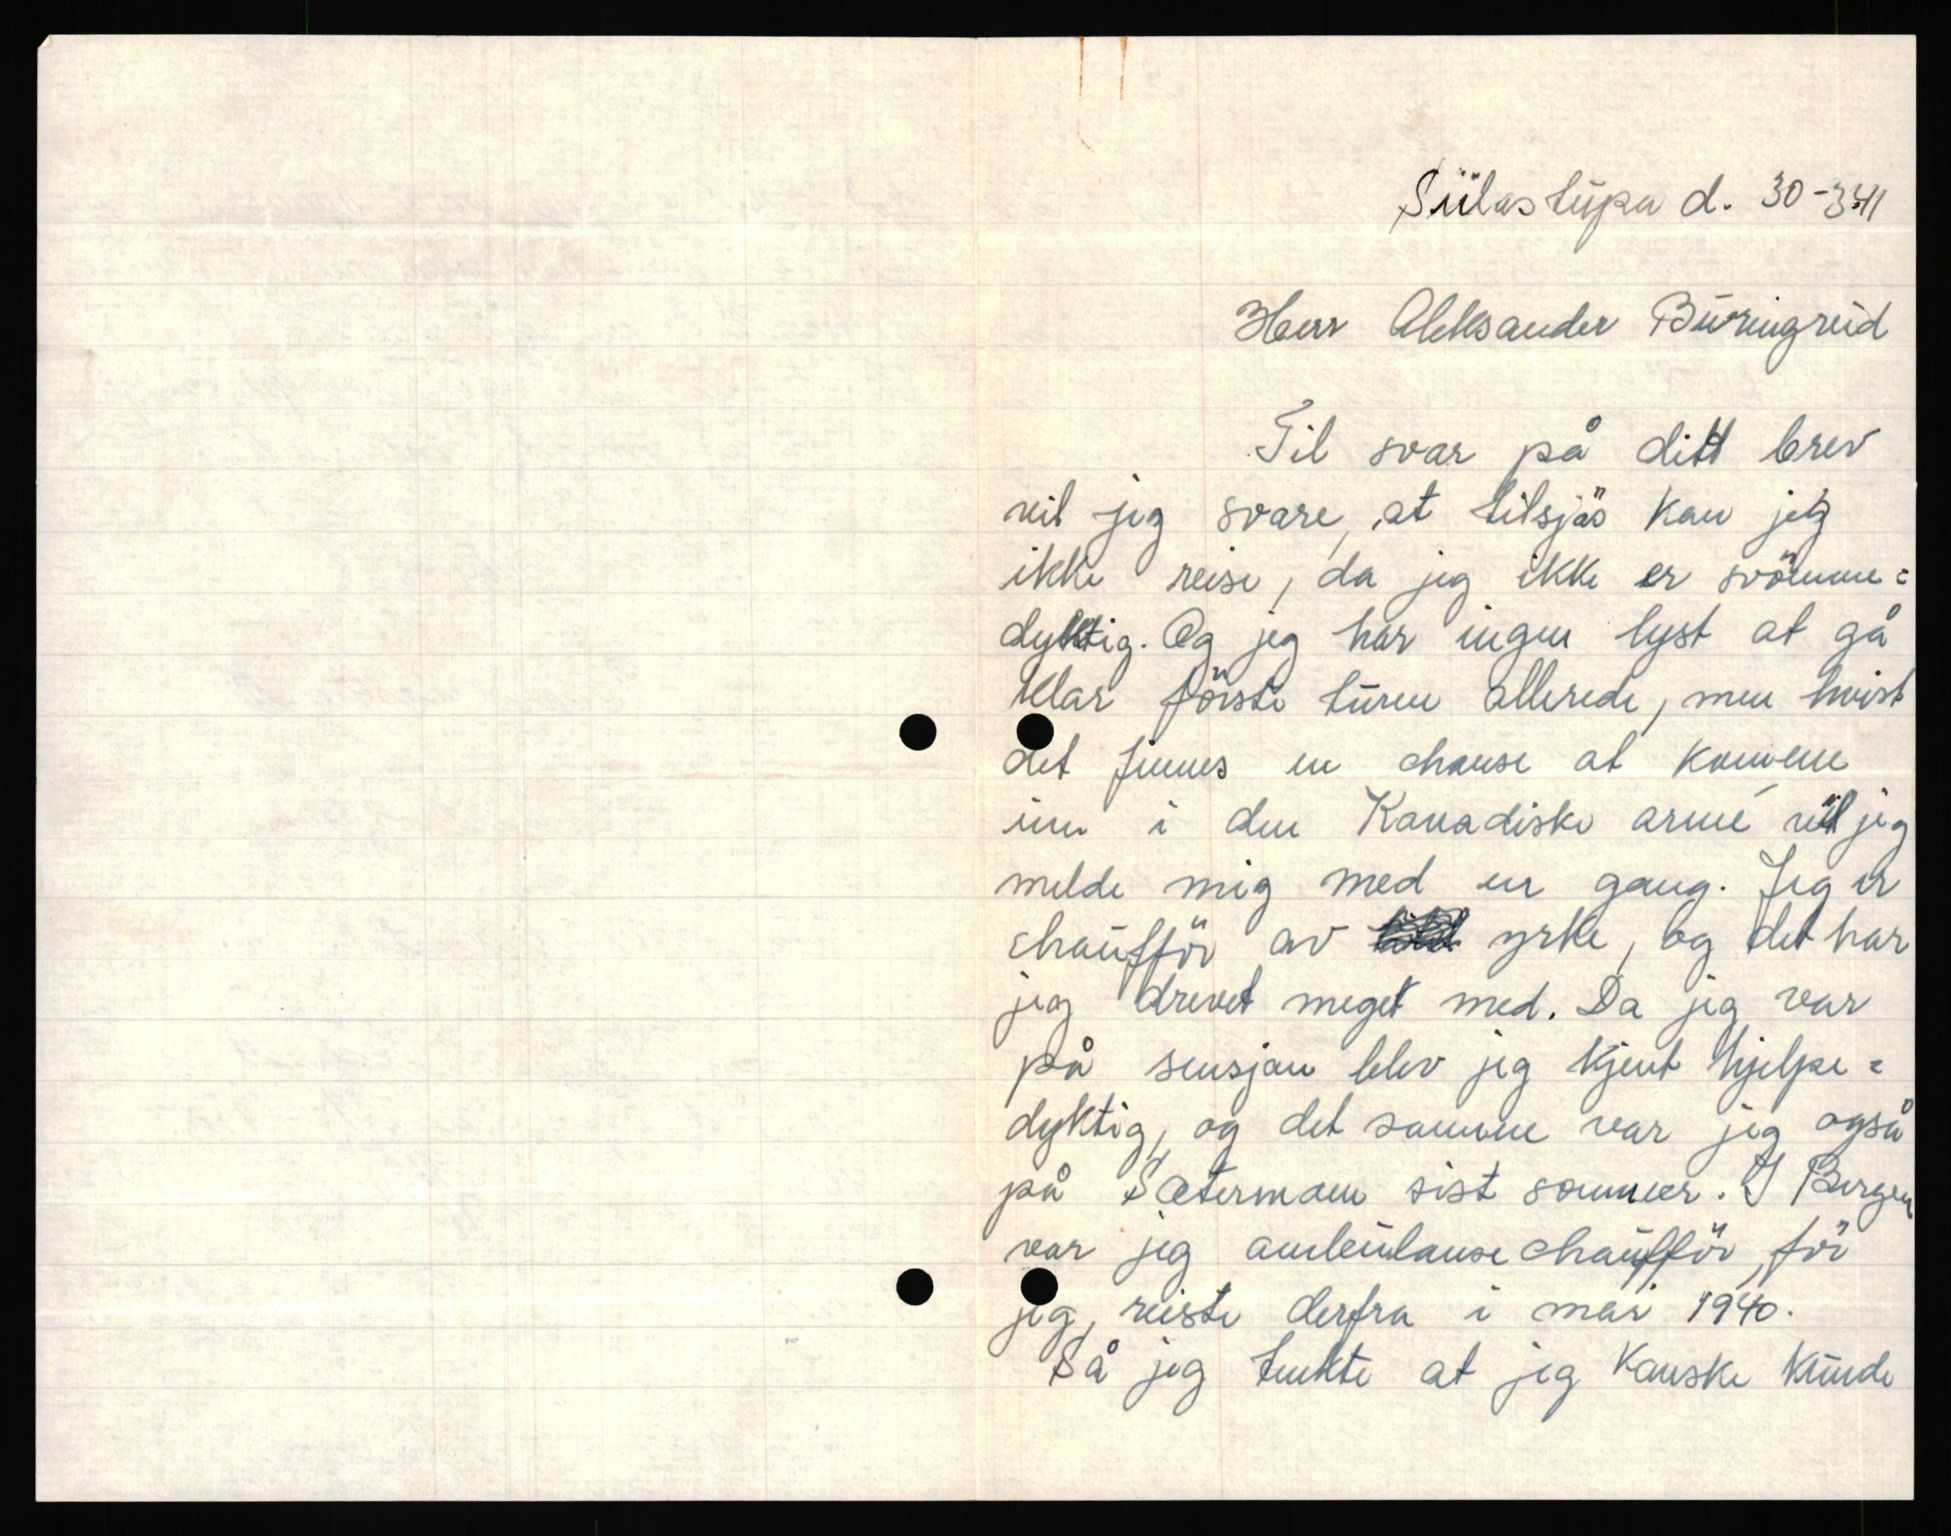 Siilastupa d. 30-3-41
Herr Aleksander Buvingrud
Til svar på ditt brev
vil jeg svare, at tilsjøs kan jeg
ikke reise, da jeg ikke er svömme=
dyktig. Og jeg har ingen lyst at gå
klar förste turen allerede, men hvist
det finnes en chanse at komme
inn i den Kanadiske armé vil jeg
melde mig med en gang. Jeg er
chaufför av yrke, og det har
jeg drevet meget med. Da jeg var
på sensjon blev jeg kjent hjelpe=
dyktig, og det samme var jeg også
på Sætermoen sist sommer. I Bergen
var jeg ambulanse chaufför, för
jeg reiste derfra i mai 1940.
Så jeg tenkte at jeg kanske kunde